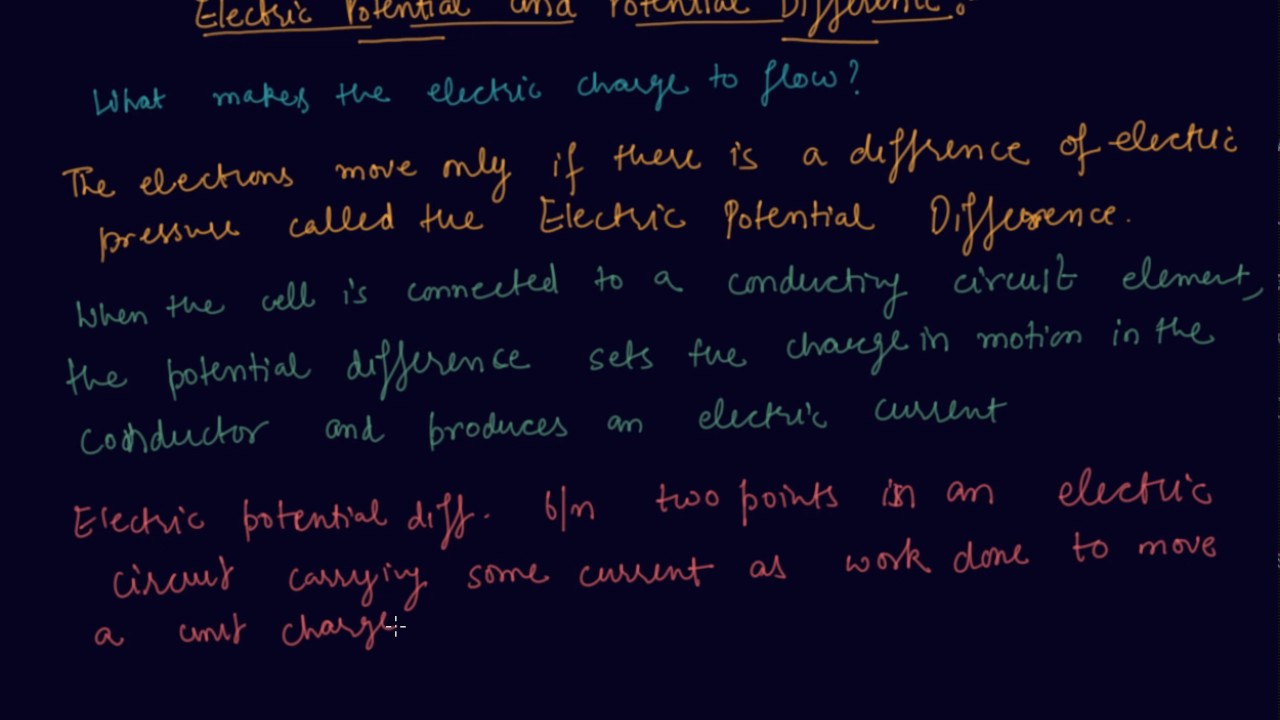 Electric Potential and Potential Difference.
What makes the electric charge to flow?
The electrons move only if there is a difference of electric
pressure called the Electric Potential Difference.
When the cell is connected to a conducting circuit element,
the potential difference sets the charge in motion in the
conductor and produces an electric current
Electric potential diff. b/n two points in an electric
circuit carrying some current as work done to move
a unit charge